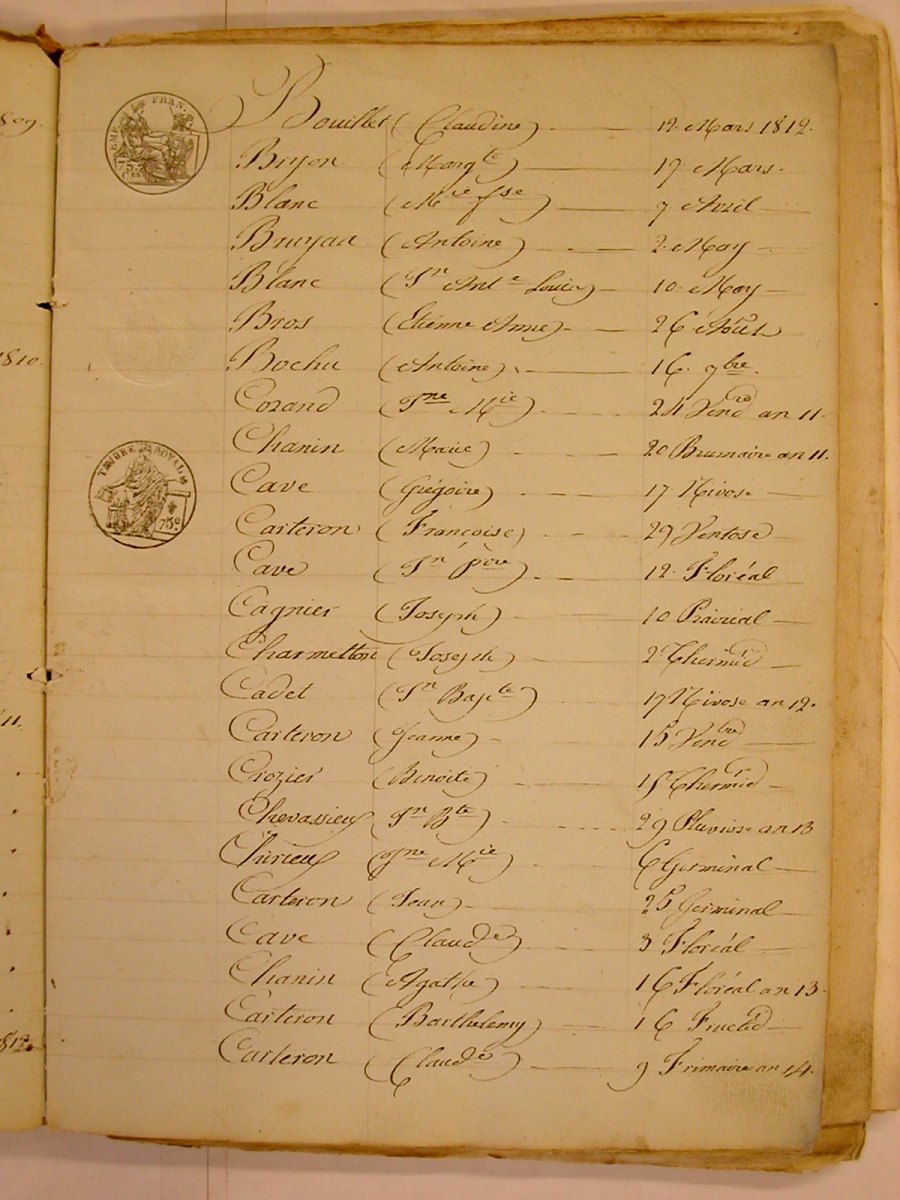 809.
Bouillet (Claudine) 12 Mars 1812.
Bryon (Margte) 17 Mars.
Blanc (Mie fse) 9 Avril
Bruyas (Antoine) 2 May
Blanc (Jn Ante Louis) 10 May
Bros (Etiénne Anne) 26 Août
1810.
Bochu (Antoine) 16 9bre.
Cozand (Jne Mie) 24 Vendre an 11.
Chanin (Marie) 20 Brumaire an 11.
TIMBRE ROYAL
75c
Cave (Grégoire) 17 Nivose
Carteron (Françoise) 29 Ventose
Cave (Jn père) 12 Floréal
Cagnier (Joseph) 10 Prairial
Charmetton (Joseph) 2 Thermid
Cadet (Jn Bapte) 17 Nivose an 12.
11.
Carteron (Jeanne) 15 Vendbre
Crozier (Benoite) 15 Thermid
Chevassieux (Jn Bte) 29 Pluviose an 13
Thirieux (Jne Mie) 6 Germinal
Carteron (Jean) 25 Germinal
Cave (Claude) 3 Floréal
Chanin (Agathe) 16 Floréal an 13.
Carteron (Barthélemy) 16 Fructid
1812.
Carteron (Claude) 9 Frimaire an 14.